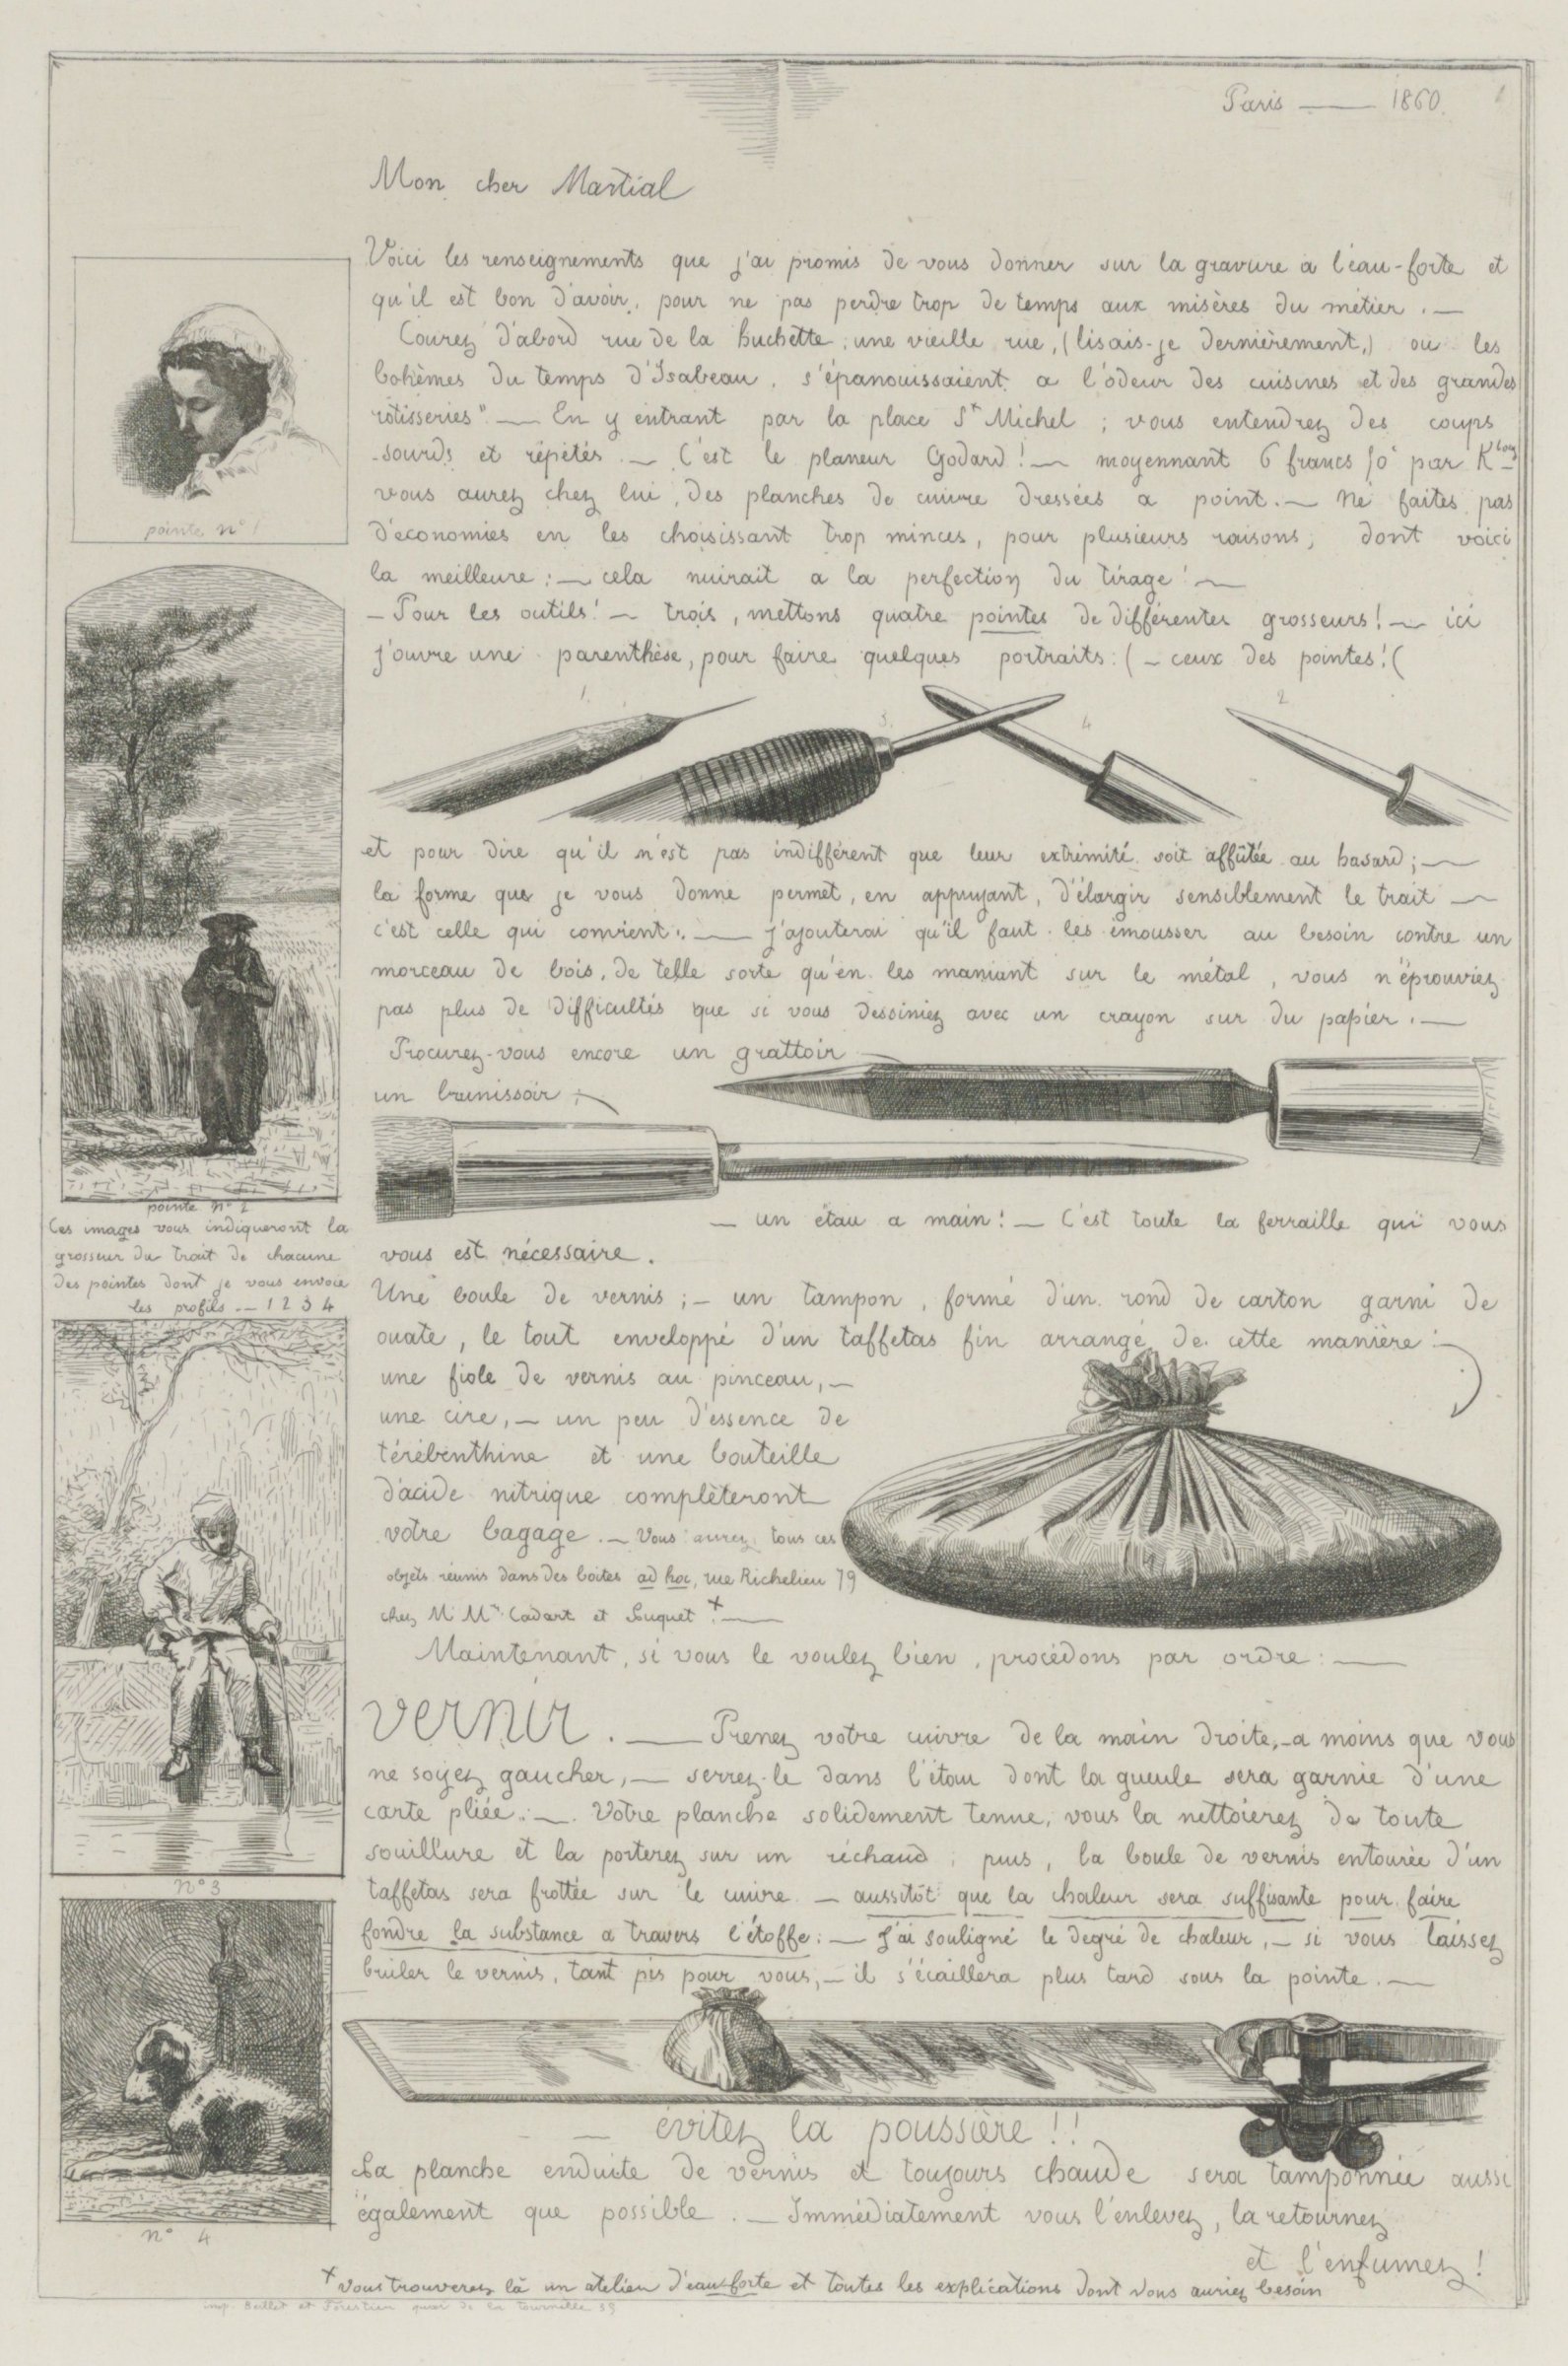 Paris — 1860.
Mon cher Martial
Voici les renseignements que j'ai promis de vous donner sur la gravure a l'eau-forte et
qu'il est bon d'avoir, pour ne pas perdre trop de temps aux misères du métier . —
Courez d'abord rue de la huchette, une vieille rue, (lisais-je dernièrement,) ou les
bohèmes du temps d'Isabeau, s'épanouissaient a l'odeur des cuisines et des grandes
rôtisseries" — En y entrant par la place St Michel ; vous entendrez des coups
sourds et répétés . — C'est le planeur Godard ! — moyennant 6 francs par K
vous aurez chez lui, des planches de cuivre dressées a point. — Ne faites pas
d'économies en les choisissant trop minces, pour plusieurs raisons, dont voici
la meilleure : — cela nuirait a la perfection du tirage ! —
— Pour les outils ! — trois, mettons quatre pointes de différentes grosseurs ! — ici
j'ouvre une parenthèse, pour faire quelques portraits : ( — ceux des pointes ! (
1 3. 4 2
et pour dire qu'il n'est pas indifférent que leur extrémité soit affûtée au hasard ; —
la forme que je vous donne permet, en appuyant, d'élargir sensiblement le trait —
c'est celle qui convient . — j'ajouterai qu'il faut les émousser au besoin contre un
morceau de bois, de telle sorte qu'en les maniant sur le métal, vous n'éprouviez
pas plus de difficultés que si vous dessiniez avec un crayon sur du papier . —
Procurez-vous encore un grattoir —
un brunissoir ;
— un étau a main ! — C'est toute la ferraille qui vous
vous est nécessaire .
Une boule de vernis ; — un tampon, formé d'un rond de carton garni de
ouate, le tout enveloppé d'un taffetas fin arrangé de cette manière : —
une fiole de vernis au pinceau, —
une cire, — un peu d'essence de
térébenthine et une bouteille
d'acide nitrique complèteront
votre bagage . — Vous aurez tous ces
objets réunis dans des boites ad hoc, rue Richelieu 79
chez M Mrs Cadart et Luquet + . —
Maintenant, si vous le voulez bien, procédons par ordre : —
vernir . — Prenez votre cuivre de la main droite, — a moins que vous
ne soyez gaucher, — serrez-le dans l'étau dont la gueule sera garnie d'une
carte pliée . — Votre planche solidement tenue, vous la nettoierez de toute
souillure et la porterez sur un réchaud ; puis, la boule de vernis entourée d'un
taffetas sera frottée sur le cuivre — aussitôt que la chaleur sera suffisante pour faire
fondre la substance a travers l'étoffe : — J'ai souligné le degré de chaleur, — si vous laissez
bruler le vernis, tant pis pour vous, — il s'écaillera plus tard sous la pointe . —
— évitez la poussière !!
La planche enduite de vernis et toujours chaude sera tamponnée aussi
également que possible . — Immédiatement vous l'enlevez, la retournez
et l'enfumez !
+ vous trouverez là un atelier d'eau-forte et toutes les explications dont vous auriez besoin
pointe n° 1
pointe n° 2
Ces images vous indiqueront la
grosseur du trait de chacune
des pointes dont je vous envoie
les profils — 1 2 3 4
n° 3
n° 4
imp. et quai de la tournelle